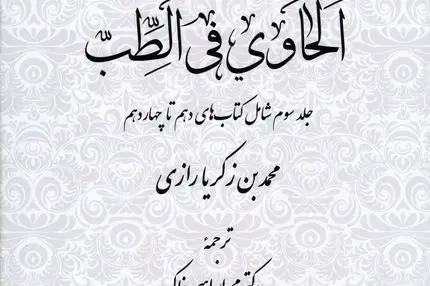 الحاوي في الطِّبّ
جلد سوم شامل کتاب‌های دهم تا چهاردهم
محمد بن زکریا رازی
ترجمهٔ